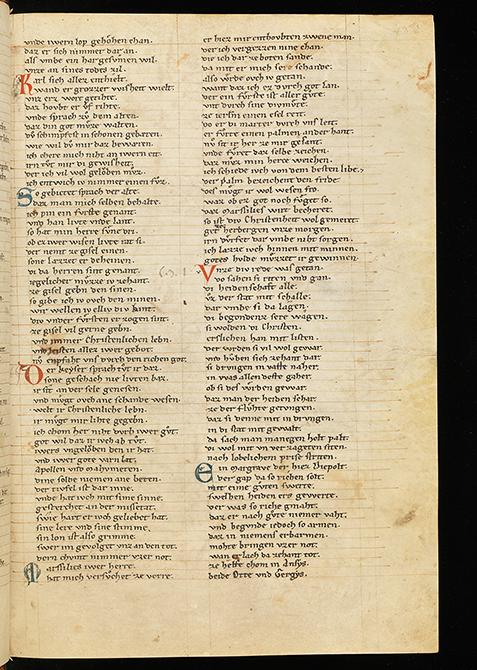 vnde iwern lop gehohen chan.
daz er sich nimmer dar an.
als vmbe ein hargefvmen wil.
vnze an sines todes zil.
Karl sich allez enthielt.
wand er grozzer wisheit wielt.
vnz erz wort gerihte.
daz hovbet er vf rihte.
vnde sprach zv dem alten.
daz din got mvze walten.
dv schimpfest in schonen gebaren.
wie wil dv mir daz bewaren.
ich chere mich niht an iwern eit.
irn tvt mir di gewisheit.
der ich vil wol geloben mvz.
ich entwich iv nimmer einen fvz.
So gebietet sprach der alte.
daz man mich selben behalte.
ich pin ein fvrste genant.
vnd han livte vnde lant.
so hat min herre svne dri.
ob ez iwer wisen livte rat si.
der nemt ze gisel einen.
sone lazzet er deheinen.
vi da herren sint genant.
iegelicher mvzze iv zehant.
ze gisel gebn den sinen.
so gibe ich iv ovch den minen.
wir wellen iv
div vnder fvrsten erzogen sint.
ze gisel vil gerne gebn.
vnd immer Christenlichen lebn.
vnd leisten allez iwer gebot.
nv enpfaht vnf dvrch den richen got.
Der keyser sprach tvt ir daz.
sone geschach nie livten baz.
ir sit an der sele genesen.
vnd mvgt ovch ane schande wesen.
welt ir Christenliche lebn.
ir mvgt mir lihte gegebn.
ich chom her niht dvrch iwer gvt.
got wil daz ir iveh ab tvt.
iwers vngelovben den ir hat.
vnd iwer gote varn lat.
Apollen vnd mahmeten.
dine solde niemen ane beten.
der tivfel ist dar inne.
vnde hat ivch mit sime sinne.
gesterchet an der missetat.
swie hart er ivch geliebet hat.
sine lere vnd sine stimme.
sin lon ist also grimme.
swer im gevolget vnz an den tot.
dern chvmt nimmer vzer not.
Marsilies iwer herre.
hat mich versvchet ze verre.
er hiez mir enthovbten zwene man.
der ich vergezzen nine chan.
die ich dar ze boten sande.
da mit er mich sere schande.
also wrde ovch iv getan.
want daz ich ez dvrch got lan.
der ein fvrste ist aller gvte.
vnt dvrch sine divmvte.
ze ierlm einen esel reit.
do er di marter dvrch vns leit.
er fvrte einen palmen an der hant.
nv sit ir her ze mir gesant.
vnde fvret daz selbe zeichen.
daz mvz min herze weichen.
ich schiede ivch von dem besten libe.
der palm bezeichent den fride.
des mvgt ir wol wesen fro.
war ob ez got noch fvget so.
daz Marsilies wirt becheret.
so ist div Christenheit wol gemeret.
get herbergen vnze morgen.
irn dvrfet dar vmbe niht sorgen.
ich lazze ivch hinnen mit minnen.
gotes hvlde mvzzet ir gewinnen.
Vnze div rede was getan.
do sahen si riten vnd gan.
di heidenschaft alle.
vz der stat mit schalle.
dar vmbe si da lagen.
di begvnden sere wagen.
si wolden di Christen.
etslichen han mit listen.
der wrden si vil wol gewar.
vnd hvben sich zehant dar.
si drvngen in vaste naher.
in was allen deste gaher.
ob si des wrden gewar.
daz man der heiden schar.
ze der flvhte getvngen.
daz si denne mit in drvngen.
in di stat mit gewalt.
da sach man manegen helt palt.
di wol mit vnverzageten siten.
nach lobelichem prise striten.
Ein margrave der hiez Diepolt.
der gap da so richen solt.
mit eime gvten swerte.
swelhen heiden ers gewerte.
der was so riche gmaht.
daz er nach gvte niemer vaht.
vnd begvnde iedoch so armen.
daz in niemens erbarmen.
mohte bringen vzer not.
wan er lach da zehant tot.
ze helfe chom in Ansys.
beide Otte vnd Gergys.